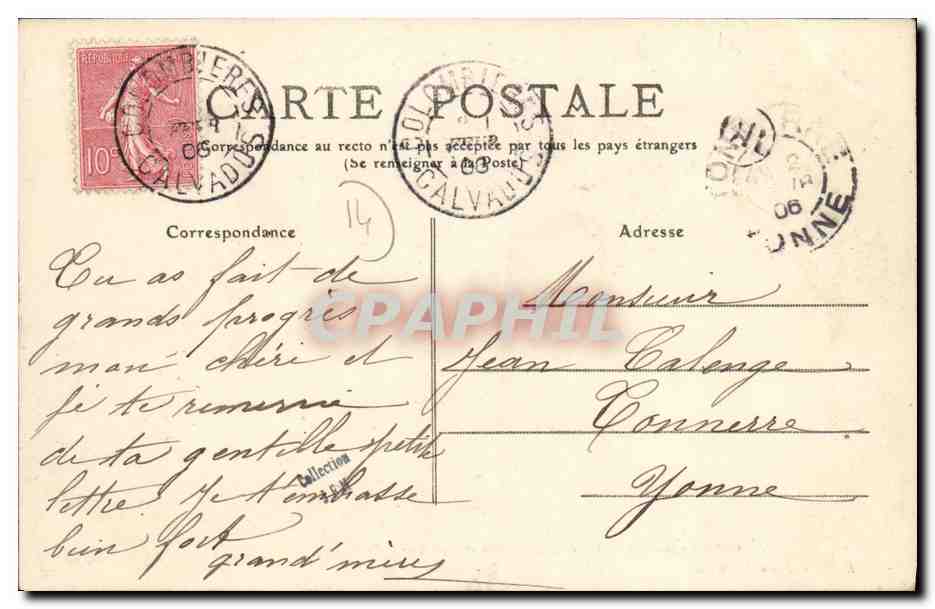 REPUBLIQUE
10c
COLOMBIERES
06
CALVADOS
COLOMBIERES
06
CALVADOS
06
YONNE
CARTE POSTALE
Correspondance au recto n'est pas acceptée par tous les pays étrangers
(Se renseigner à la Poste)
14
Correspondance
Adresse
Tu as fait de
grands progrès
mon chéri et
je te remercie
de ta gentille petite
lettre. Je t'embrasse
bien fort
grand'mère
Monsieur
Jean Talenge
Tonnerre
Yonne
CPAPHIL
Collection